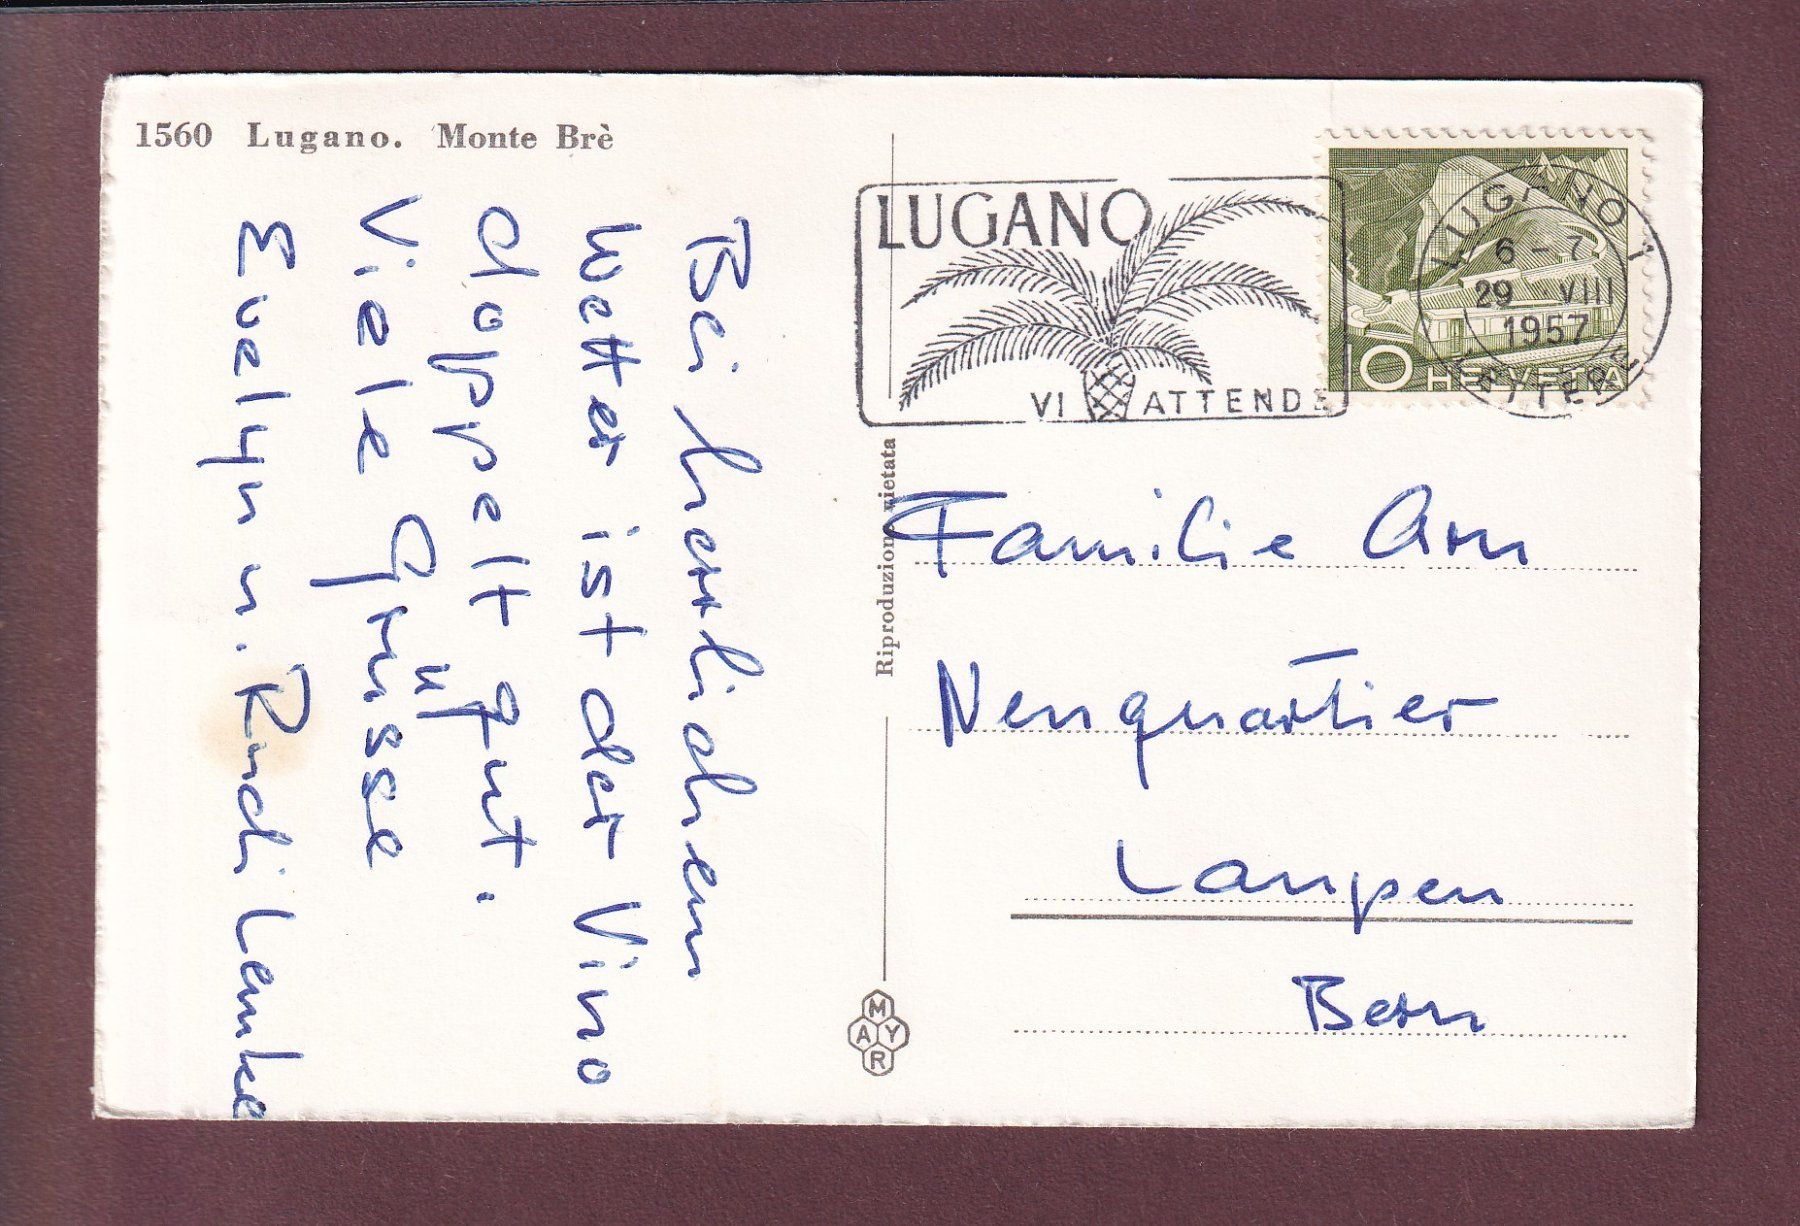 1560 Lugano. Monte Brè
Bei herrlichem
Wetter ist der Vino
doppelt gut.
Viele Grüsse
Evelyn u. Rudi Lemke
Riproduzione vietata
MAYR
LUGANO
VI ATTENDE
LUGANO 1
6-7
29 VIII
1957
LETTERE
10 HELVETIA
Familie Arn
Neuquartier
Laupen
Bern